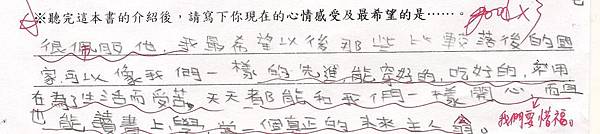 ※聽完這本書的介紹後，請寫下你現在的心情感受及最希望的是……。 good x3
很佩服他，我最希望以後那些比較落後的國
家可以像我們一樣的先進，能穿好的，吃好的，不用
在為了生活而受苦。天天都能和我們一樣開心，而且
也能讀書上學，當一個真正的未來主人翁。
我們要惜福。